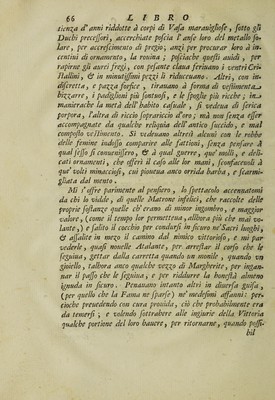 66 LIBRO
tienza d'anni riddotte à corpi di Vasa maravigliose, sotto gli
Duchi precessori, accrecchiate poscia l'anse loro del metallo so-
lare, per accrescimento di pregio; anzi per procurar loro à in-
centivi di ornamento, la rovina; posciache questi avidi, per
rapirne gli aurei fregi, con pesante clava ferivano i ventri Cri-
stallini, & in minutissimi pezzi li riducevano. Altri, con in-
discretta, e pazza forfice, tiravano à forma di vestimenta
bizzarre, i padiglioni più sontuosi, e le spoglie più ricche: in
manierache la metà dell'habito casuale, si vedeva di serica
porpora, l'altra di riccio sopraricccio d'oro; mà non senza esser
accompagnate da qualche reliquia dell'antico succido, e mal
composto vestimento. Si vedevano altresì alcuni con le robbe
delle femine indosso comparire alle fattioni, senza pensare il
qual sesso si convenissero, & à qual guerre, què molli, e deli-
cati ornamenti, che offerì il caso alle lor mani, confacendosi à
què volti minacciosi, cui pioveva anco orrida barba, e scarmi-
gliata dal mento.
Mi s'offre parimente al pensiero, lo spettacolo accennatomi
da chi lo vidde, di quelle Matrone infelici, che raccolte delle
proprie sostanze quelle ch'erano di minor ingombro, e maggior
valore, (come il tempo lor permetteva, allhora più che mai vo-
lante,) e salito il cocchio per condursi in sicuro ne' Sacri luoghi,
& assalite in mezo il camino dal nimico vittorioso, e mi par
vederle, quasi novelle Atalante, per arrestar il corso chi le
seguiva, gettar dalla carretta quando un monile, quando un
gioiello, talhora anco qualche vezzo di Margherite, per ingan-
nar il passo che le seguiva, e per riddurre la honestà almeno
ignuda in sicuro. Penavano intanto altri in diversa guisa,
(per quello che la Fama ne sparse) ne' medesimi affanni: per-
cioche prevedendo con cura provida, ciò che probabilmente era
da temersi; e volendo sottrahere alle ingiurie della Vittoria
qualche portione del loro havere, per ritornarne, quando possi-
bil